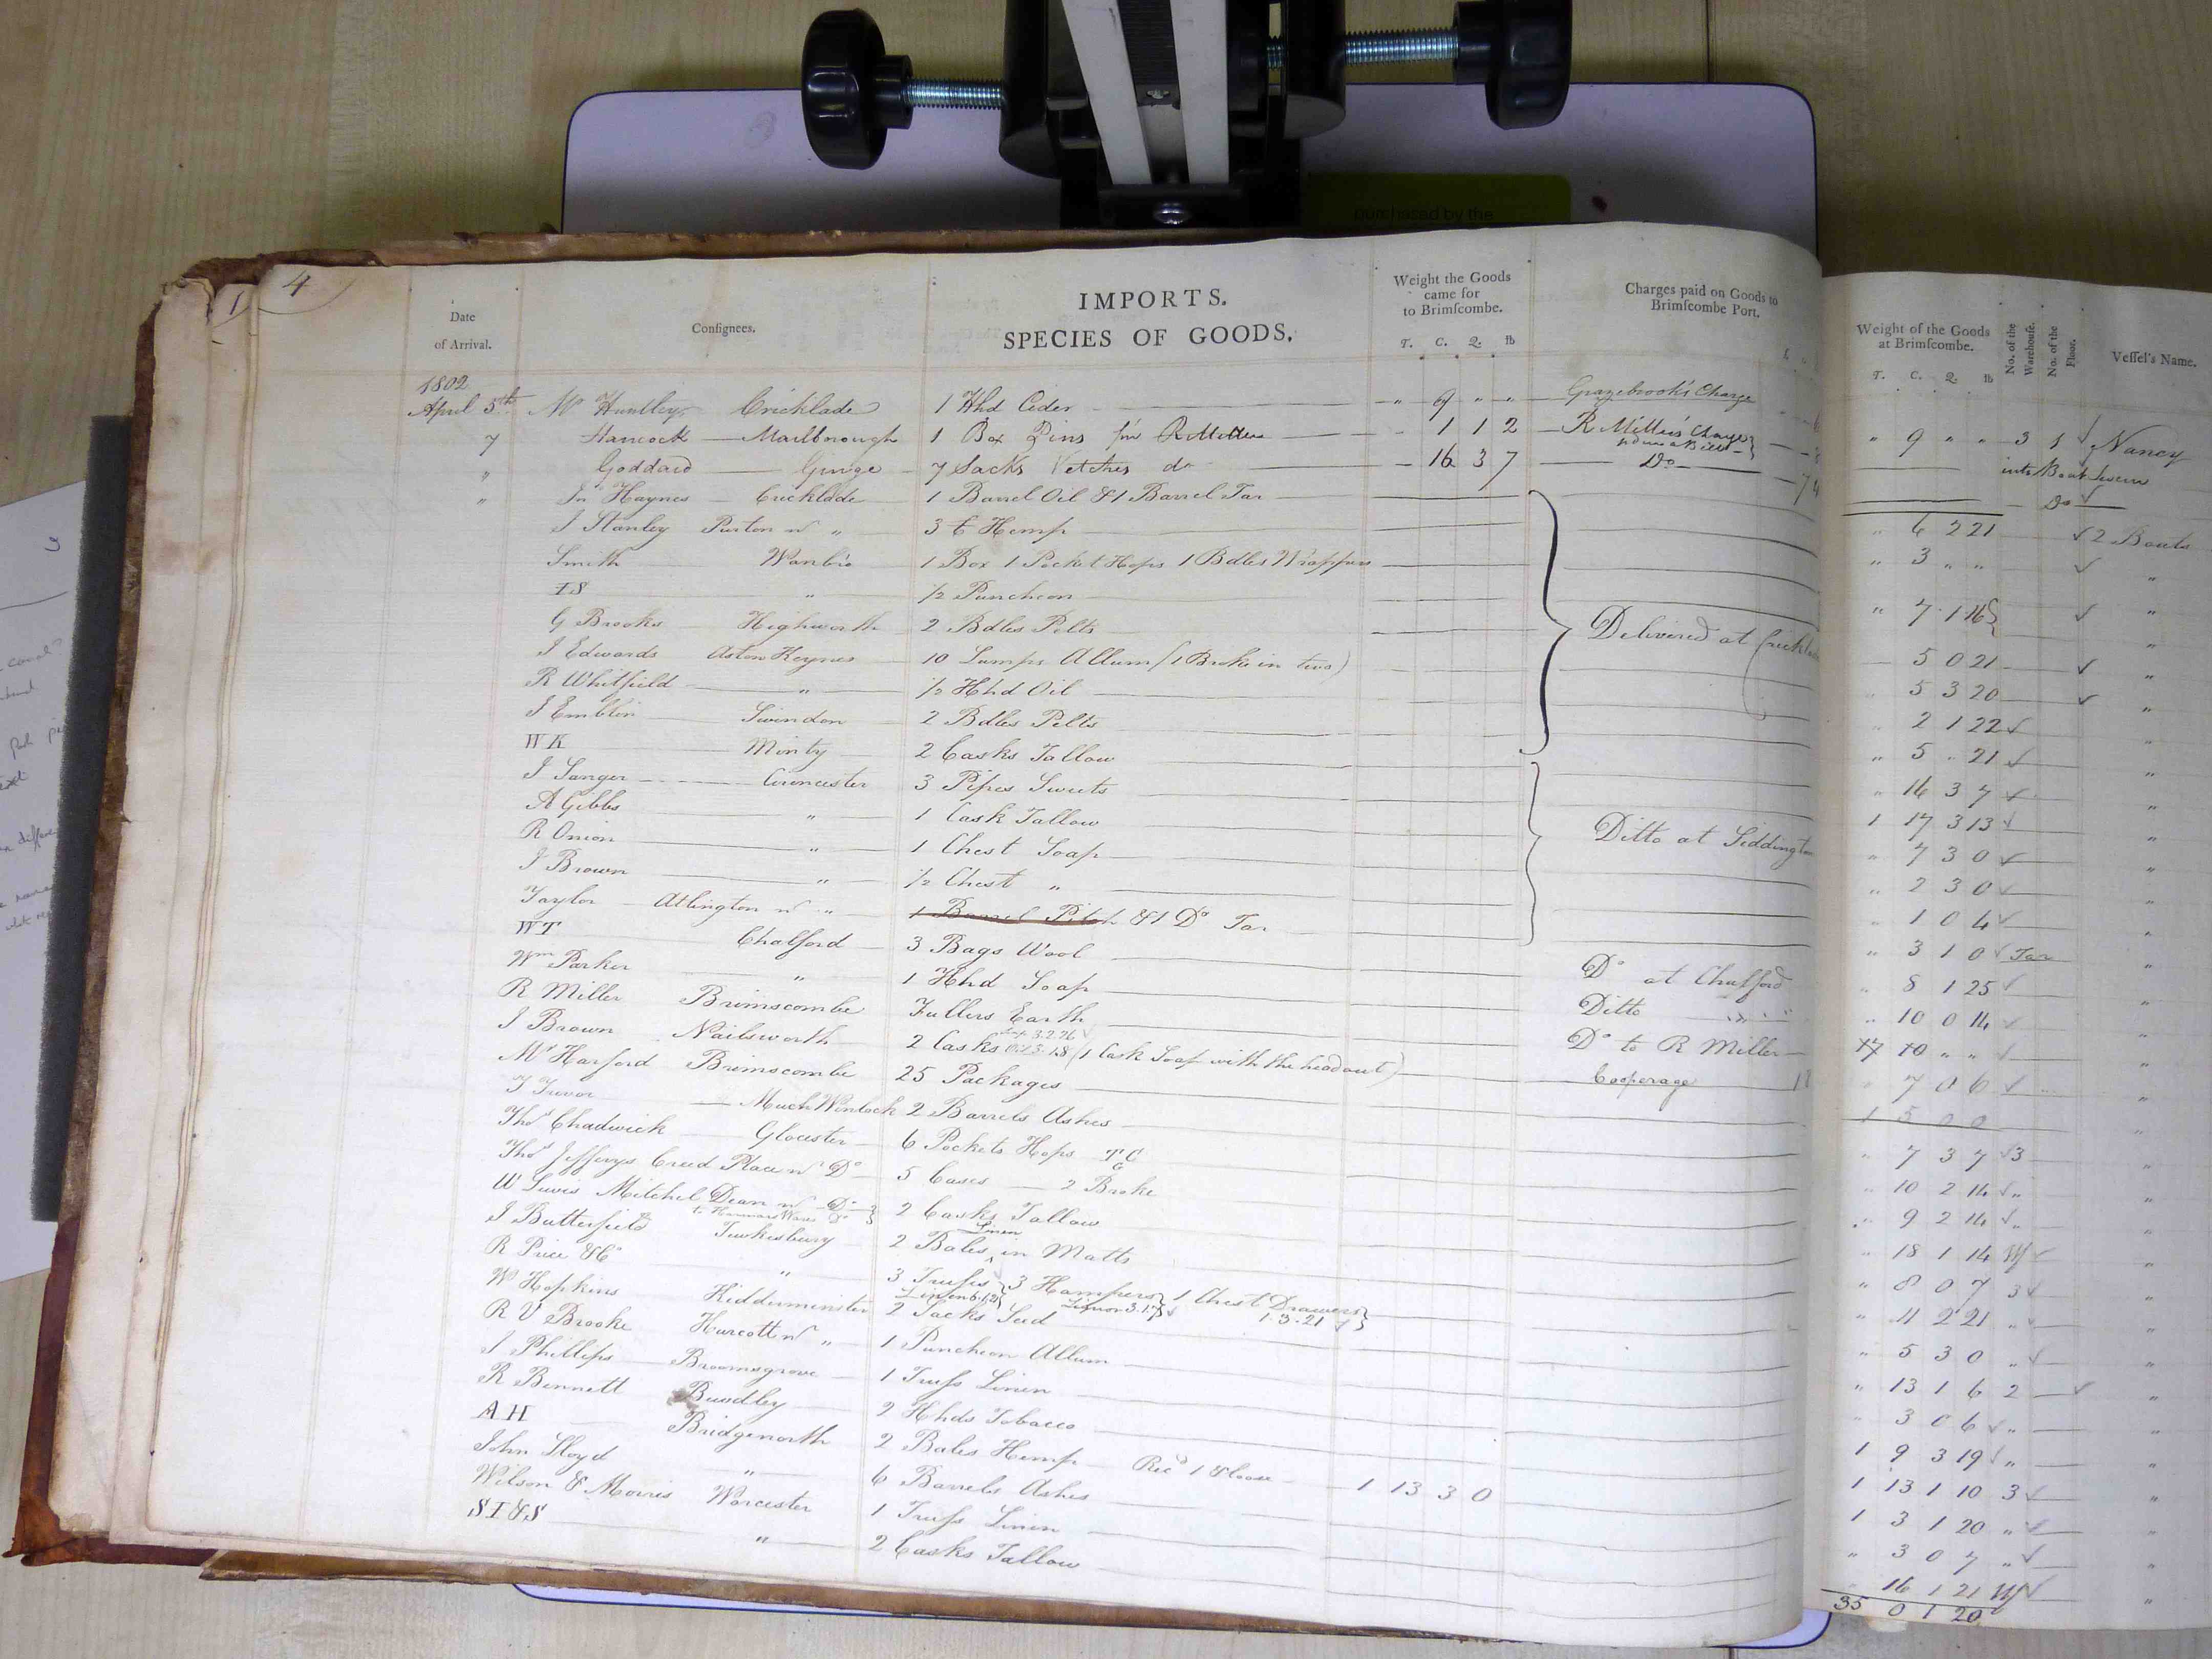 purchased by the
4
1
Date of Arrival.
Consignees.
IMPORTS.
SPECIES OF GOODS.
Weight the Goods came for to Brimscombe.
T. C. Q. lb
Charges paid on Goods to Brimscombe Port.
Weight of the Goods at Brimscombe.
T. C. Q. lb
No. of the Warehouse.
No. of the Floor.
Vessel's Name.
1802
April 5th Mr Huntley Cricklade 1 Hhd Cider " 9 " " Grazebrook's Charge " 9 " " 3 1 Nancy
7 Hancock Marlborough 1 Box Pins fm R Miller 1 1 2 R Miller's Charge into Boat
" Goddard Ginge 7 Sacks Vetches do 16 3 7 Do Do
" Jn Haynes Cricklade 1 Barrel Oil & 1 Barrel Tar " 6 2 21 2 Boats
J Stanley Purton nr " 3 C Hemp " 3 " " "
Smith Wanbro 1 Box 1 Pocket Hops 1 Bdles Wrappers " 7 1 16 "
IS " 1/2 Puncheon
G Brooks Highworth 2 Bdles Pelts 5 0 21 "
Delivered at Cricklade
J Edwards Aston Keynes 10 Lumps Allum (1 Broke in two) 5 3 20 "
R Whitfield " 1/2 Hhd Oil 2 1 22 "
J Emblin Swindon 2 Bdles Pelts " 5 " 21 "
WK Minty 2 Casks Tallow " 16 3 7 "
J Sanger Cirencester 3 Pipes Sweets 1 17 3 13 "
A Gibbs " 1 Cask Tallow " 7 3 0 "
Ditto at Siddington
R Onion " 1 Chest Soap " 2 3 0 "
J Brown " 1/2 Chest " " 1 0 4 "
Taylor Atlington nr " 1 Barrel Pitch & 1 Do Tar " 3 1 0 Tar "
WT Chalford 3 Bags Wool Do at Chalford " 8 1 25 "
Wm Parker " 1 Hhd Soap Ditto " " 10 0 14 "
R Miller Brimscombe Fullers Earth Do to R Miller 17 10 " " "
J Brown Nailsworth 2 Casks (1 Cask Soap with the head out) Cooperage " 7 0 6 "
Mr Harford Brimscombe 25 Packages 1 5 0 0 "
T Trevor Much Wenlock 2 Barrels Ashes " 7 3 7 3 "
Thos Chadwick Glocester 6 Pockets Hops TC G " 10 2 14 " "
Thos Jefferys Creed Place nr Do 5 Cases 2 Broke " 9 2 14 " "
W Lewis Mitchel Dean nr Do 2 Casks Tallow " 18 1 14 Wf "
J Butterfield Tewkesbury 2 Bales Linen in Matts " 8 0 7 3 "
R Price & Co " 3 Trusses 3 Hampers 1 Chest Drawers " 11 2 21 " "
Liquor 3.1.7 1.3.21
W Hopkins Kidderminster 2 Sacks Seed " 5 3 0 " "
R V Brooke Hurcott nr " 1 Puncheon Allum " 13 1 6 2 "
J Phillips Broomsgrove 1 Truss Linen " 3 0 6 " "
R Bennett Bewdley 2 Hhds Tobacco 1 9 3 19 " "
AH Bridgenorth 2 Bales Hemp Recd 1 Loose 1 13 3 0 1 13 1 10 3 "
John Lloyd " 6 Barrels Ashes 1 3 1 20 " "
Wilson & Morris Worcester 1 Truss Linen " 3 0 7 " "
SI&S " 2 Casks Tallow 16 1 21 Wf "
35 0 1 20